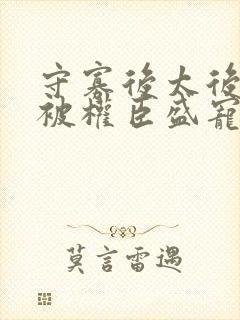 守寡後太後
被權臣盛寵
莫言雷遇